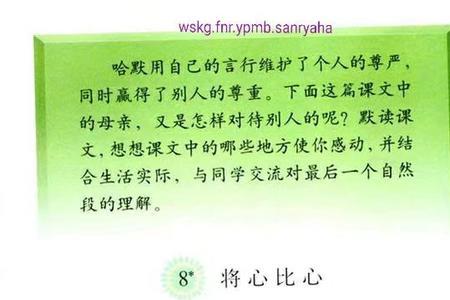 wskg.fnr.ypmb.sanryaha
哈默用自己的言行维护了个人的尊严，
同时赢得了别人的尊重。下面这篇课文中
的母亲，又是怎样对待别人的呢？默读课
文，想想课文中的哪些地方使你感动，并结
合生活实际，与同学交流对最后一个自然
段的理解。
8* 将心比心